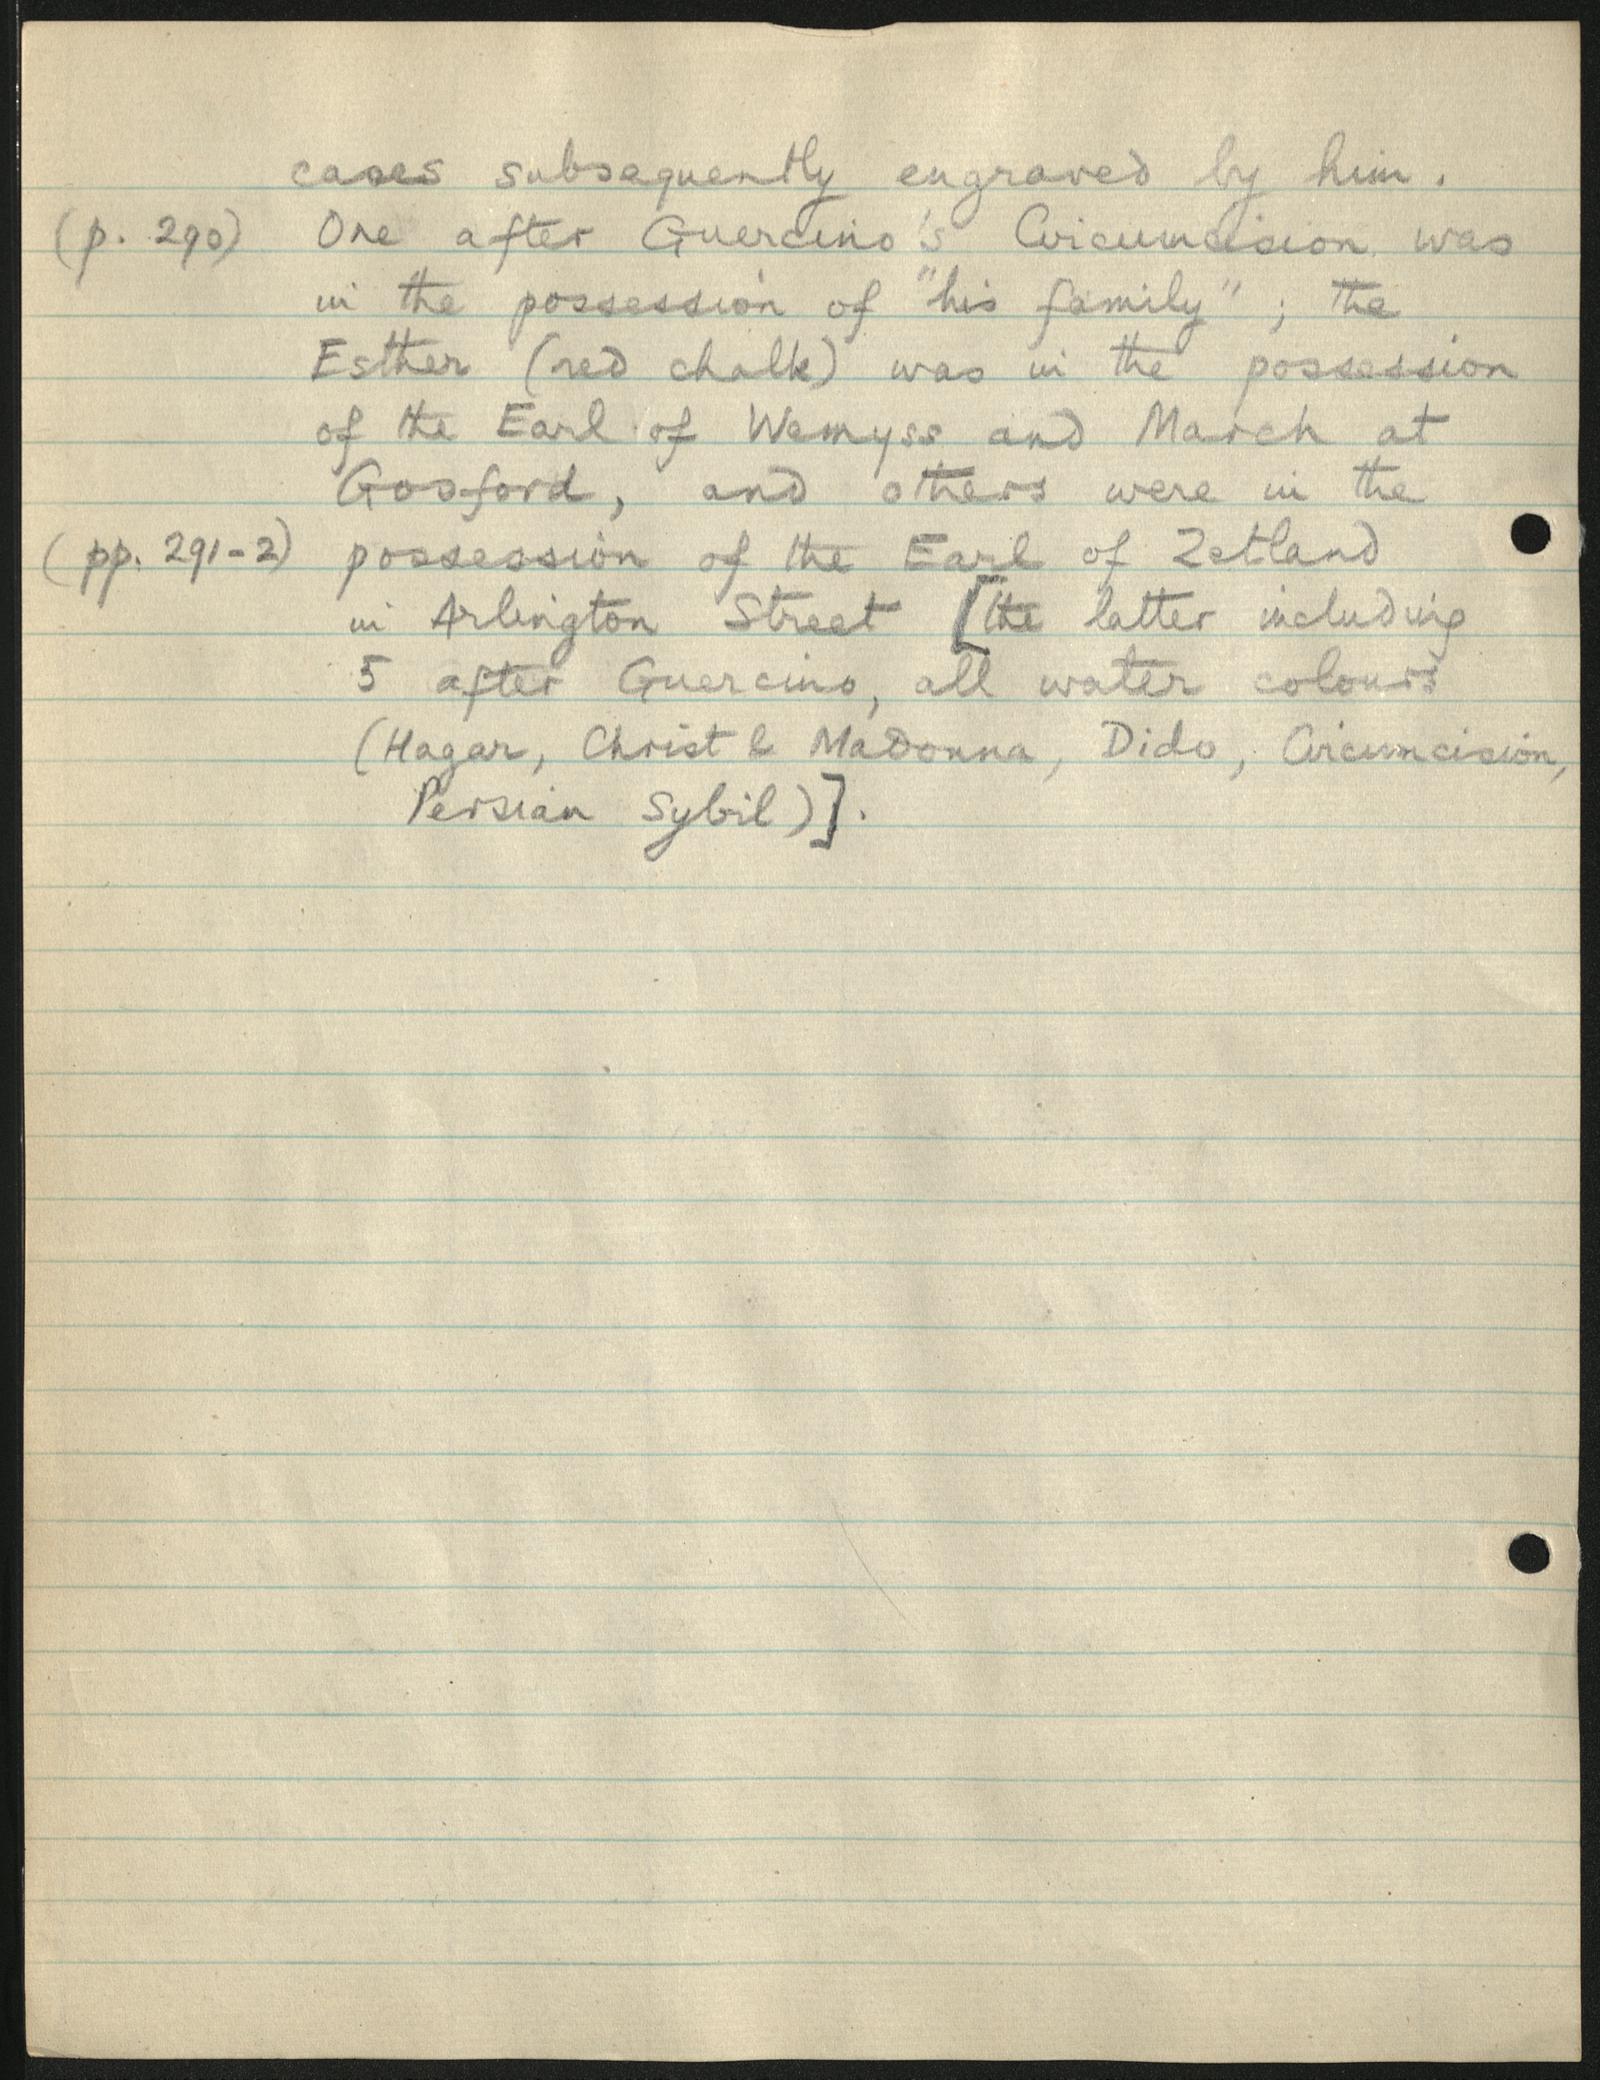 cases subsequently engraved by him.
(p. 290) One after Guercino's Circumcision was
in the possession of "his family"; the
Esther (red chalk) was in the possession
of the Earl of Wemyss and March at
Gosford, and others were in the
(pp. 291-2) possession of the Earl of Zetland
in Arlington Street [the latter including
5 after Guercino, all water colours
(Hagar, Christ & Madonna, Dido, Circumcision,
Persian Sybil)].